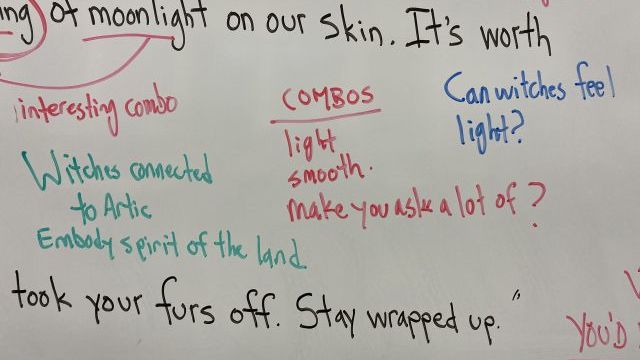 ing of moonlight on our skin. It's worth
interesting combo
COMBOS
light
smooth.
make you ask a lot of ?
Can witches feel
light?
Witches connected
to Artic
Embody spirit of the land
took your furs off. Stay wrapped up."
YOU'D